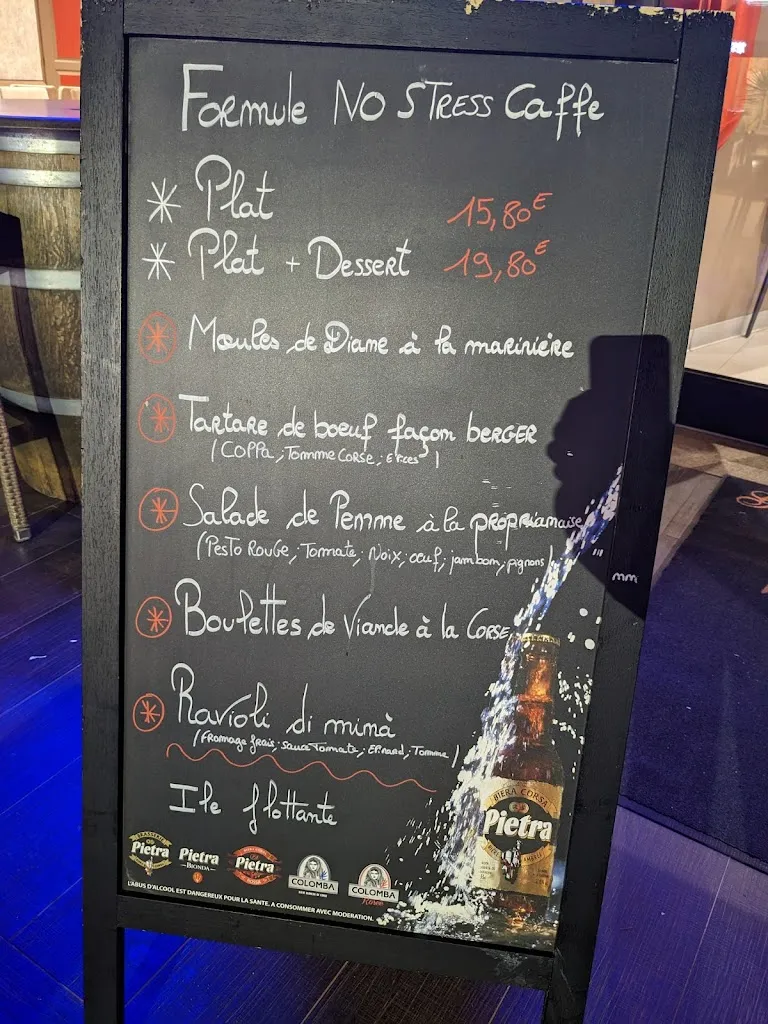 Formule NO STRESS Caffe
* Plat 15,80€
* Plat + Dessert 19,80€
Moules de Diane à la marinière
Tartare de boeuf façon berger
(Coppa, Tomme Corse, Epices)
Salade de Penne à la propriamaise
(Pesto Rouge, Tomate, Noix, œuf, jambon, pignons)
Boulettes de Viande à la Corse
Ravioli di minà
(Fromage frais, sauce Tomate, Epinard, Tomme)
Ile flottante
BIERA CORSA
Pietra
BRASSERIE
Pietra
Pietra
BIONDA
Pietra
COLOMBA
COLOMBA
Rosée
L'ABUS D'ALCOOL EST DANGEREUX POUR LA SANTE. A CONSOMMER AVEC MODERATION.